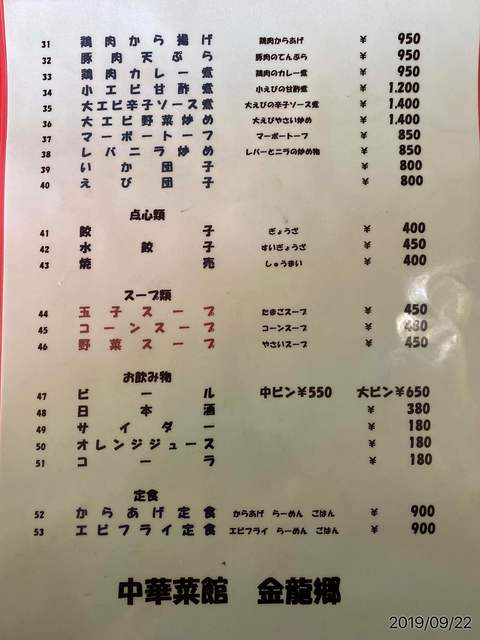 31 鶏肉から揚げ 鶏肉からあげ ¥ 950
32 豚肉天ぷら 豚肉のてんぷら ¥ 950
33 鶏肉カレー煮 鶏肉のカレー煮 ¥ 950
34 小エビ甘酢煮 小えびの甘酢煮 ¥ 1.200
35 大エビ辛子ソース煮 大えびの辛子ソース煮 ¥ 1.400
36 大エビ野菜炒め 大えびやさい炒め ¥ 1.400
37 マーボートーフ マーボートーフ ¥ 850
38 レバニラ炒め レバーとニラの炒め物 ¥ 850
39 いか団子 ¥ 800
40 えび団子 ¥ 800
点心類
41 餃子 ぎょうざ ¥ 400
42 水餃子 すいぎょうざ ¥ 450
43 焼売 しゅうまい ¥ 400
スープ類
44 玉子スープ たまごスープ ¥ 450
45 コーンスープ コーンスープ ¥
46 野菜スープ やさいスープ ¥ 450
お飲み物
47 ビール 中ビン¥550 大ビン¥650
48 日本酒 ¥ 380
49 サイダー ¥ 180
50 オレンジジュース ¥ 180
51 コーラ ¥ 180
定食
52 からあげ定食 からあげ らーめん ごはん ¥ 900
53 エビフライ定食 エビフライ らーめん ごはん ¥ 900
中華菜館 金龍郷
2019/09/22